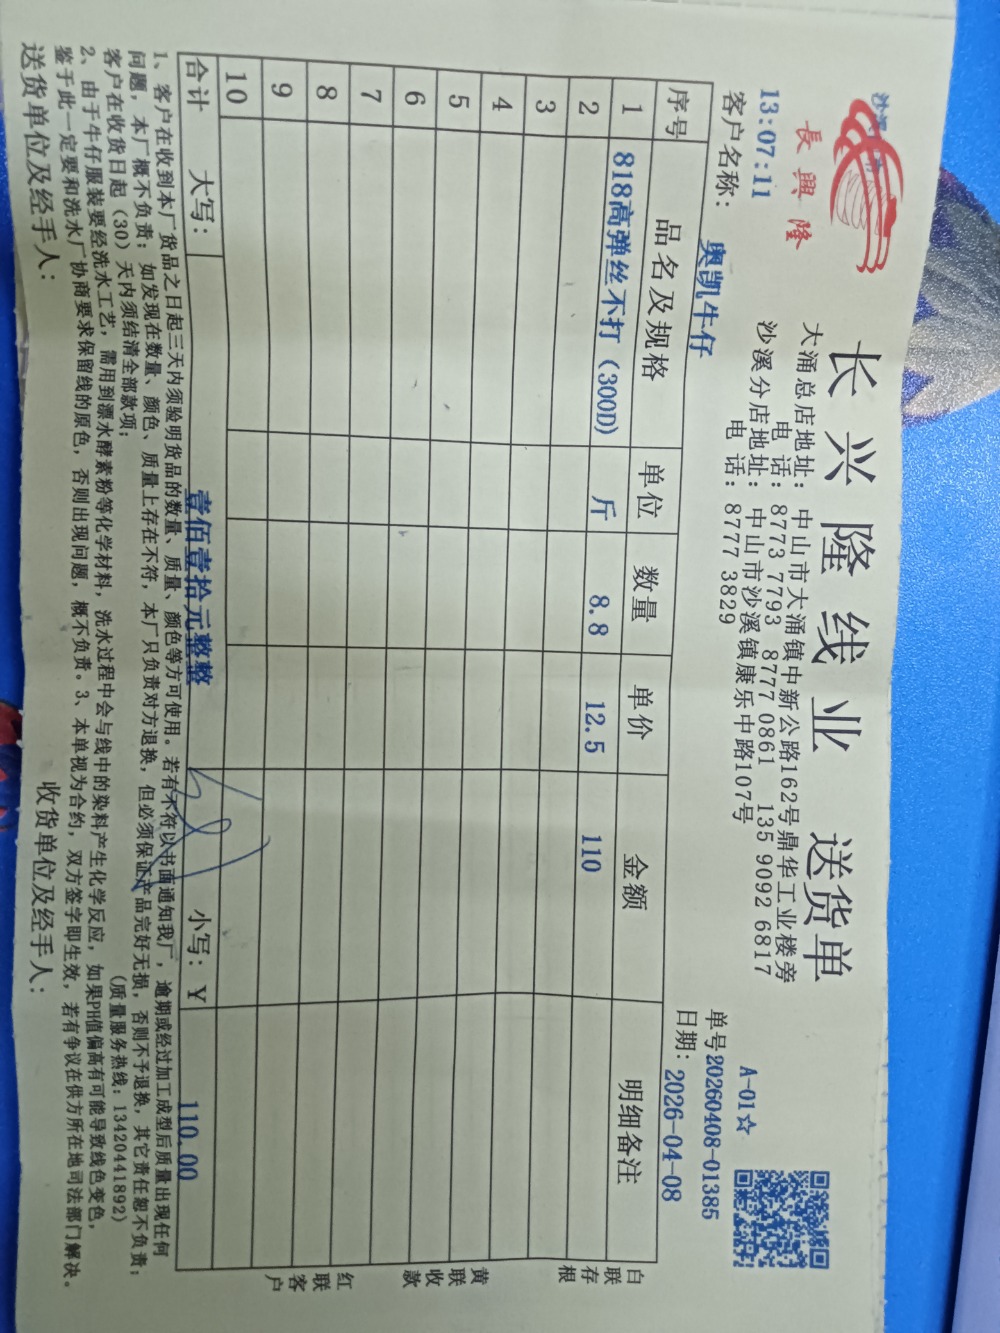 長興隆
长兴隆线业 送货单
A-01☆
大涌总店地址：中山市大涌镇中新公路162号鼎华工业楼旁
电 话：8773 7793 8777 0861 135 9092 6817
13:07:11
沙溪分店地址：中山市沙溪镇康乐中路107号
电 话：8777 3829
单号20260408-01385
客户名称：奥凯牛仔
日期：2026-04-08
序号 品名及规格 单位 数量 单价 金额 明细备注
1 818高弹丝不打（300D） 斤 8.8 12.5 110
2
3
4
5
6
7
8
9
10
合计 大写：壹佰壹拾元整整 小写：¥ 110.00
白联存根
黄联收款
红联客户
1、客户在收到本厂货品之日起三天内须验明货品的数量、质量、颜色等方可使用。若有不符以书面通知我厂，逾期或经过加工成型后质量出现任何
问题，本厂概不负责；如发现在数量、颜色、质量上存在不符，本厂只负责对方退换，但必须保证产品完好无损，否则不予退换，其它责任恕不负责；
客户在收货日起（30）天内须结清全部款项； （质量服务热线：13420441892）
2、由于牛仔服装要经洗水工艺，需用到漂水酵素粉等化学材料，洗水过程中会与线中的染料产生化学反应，如果PH值偏高有可能导致线色变色，
鉴于此一定要和洗水厂协商要求保留线的原色，否则出现问题，概不负责。3、本单视为合约，双方签字即生效，若有争议在供方所在地司法部门解决。
送货单位及经手人： 收货单位及经手人：